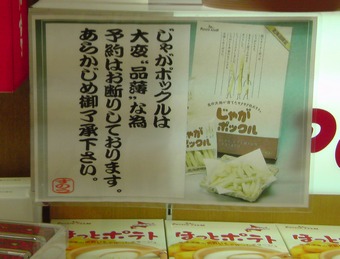 じゃがポックルは
大変“品薄”な為
予約はお断りしております。
あらかじめ御了承下さい。
じゃが
ポックル
ほっとポテト
ほっとポテト
ほっとポテト